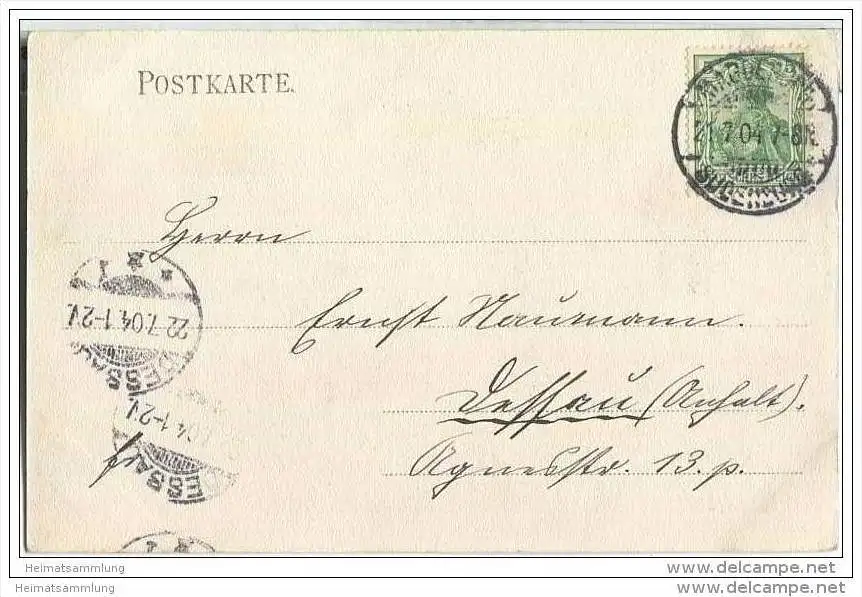 POSTKARTE.
21.7.04 7-8N.
Herrn
Ernst Naumann.
Dessau (Anhalt).
Agnesstr. 13. p.
fr
1
22.7.04.1-2V.
DESSAU
04.1-2V.
DESSAU
Heimatsammlung
Heimatsammlung
www.delcampe.net